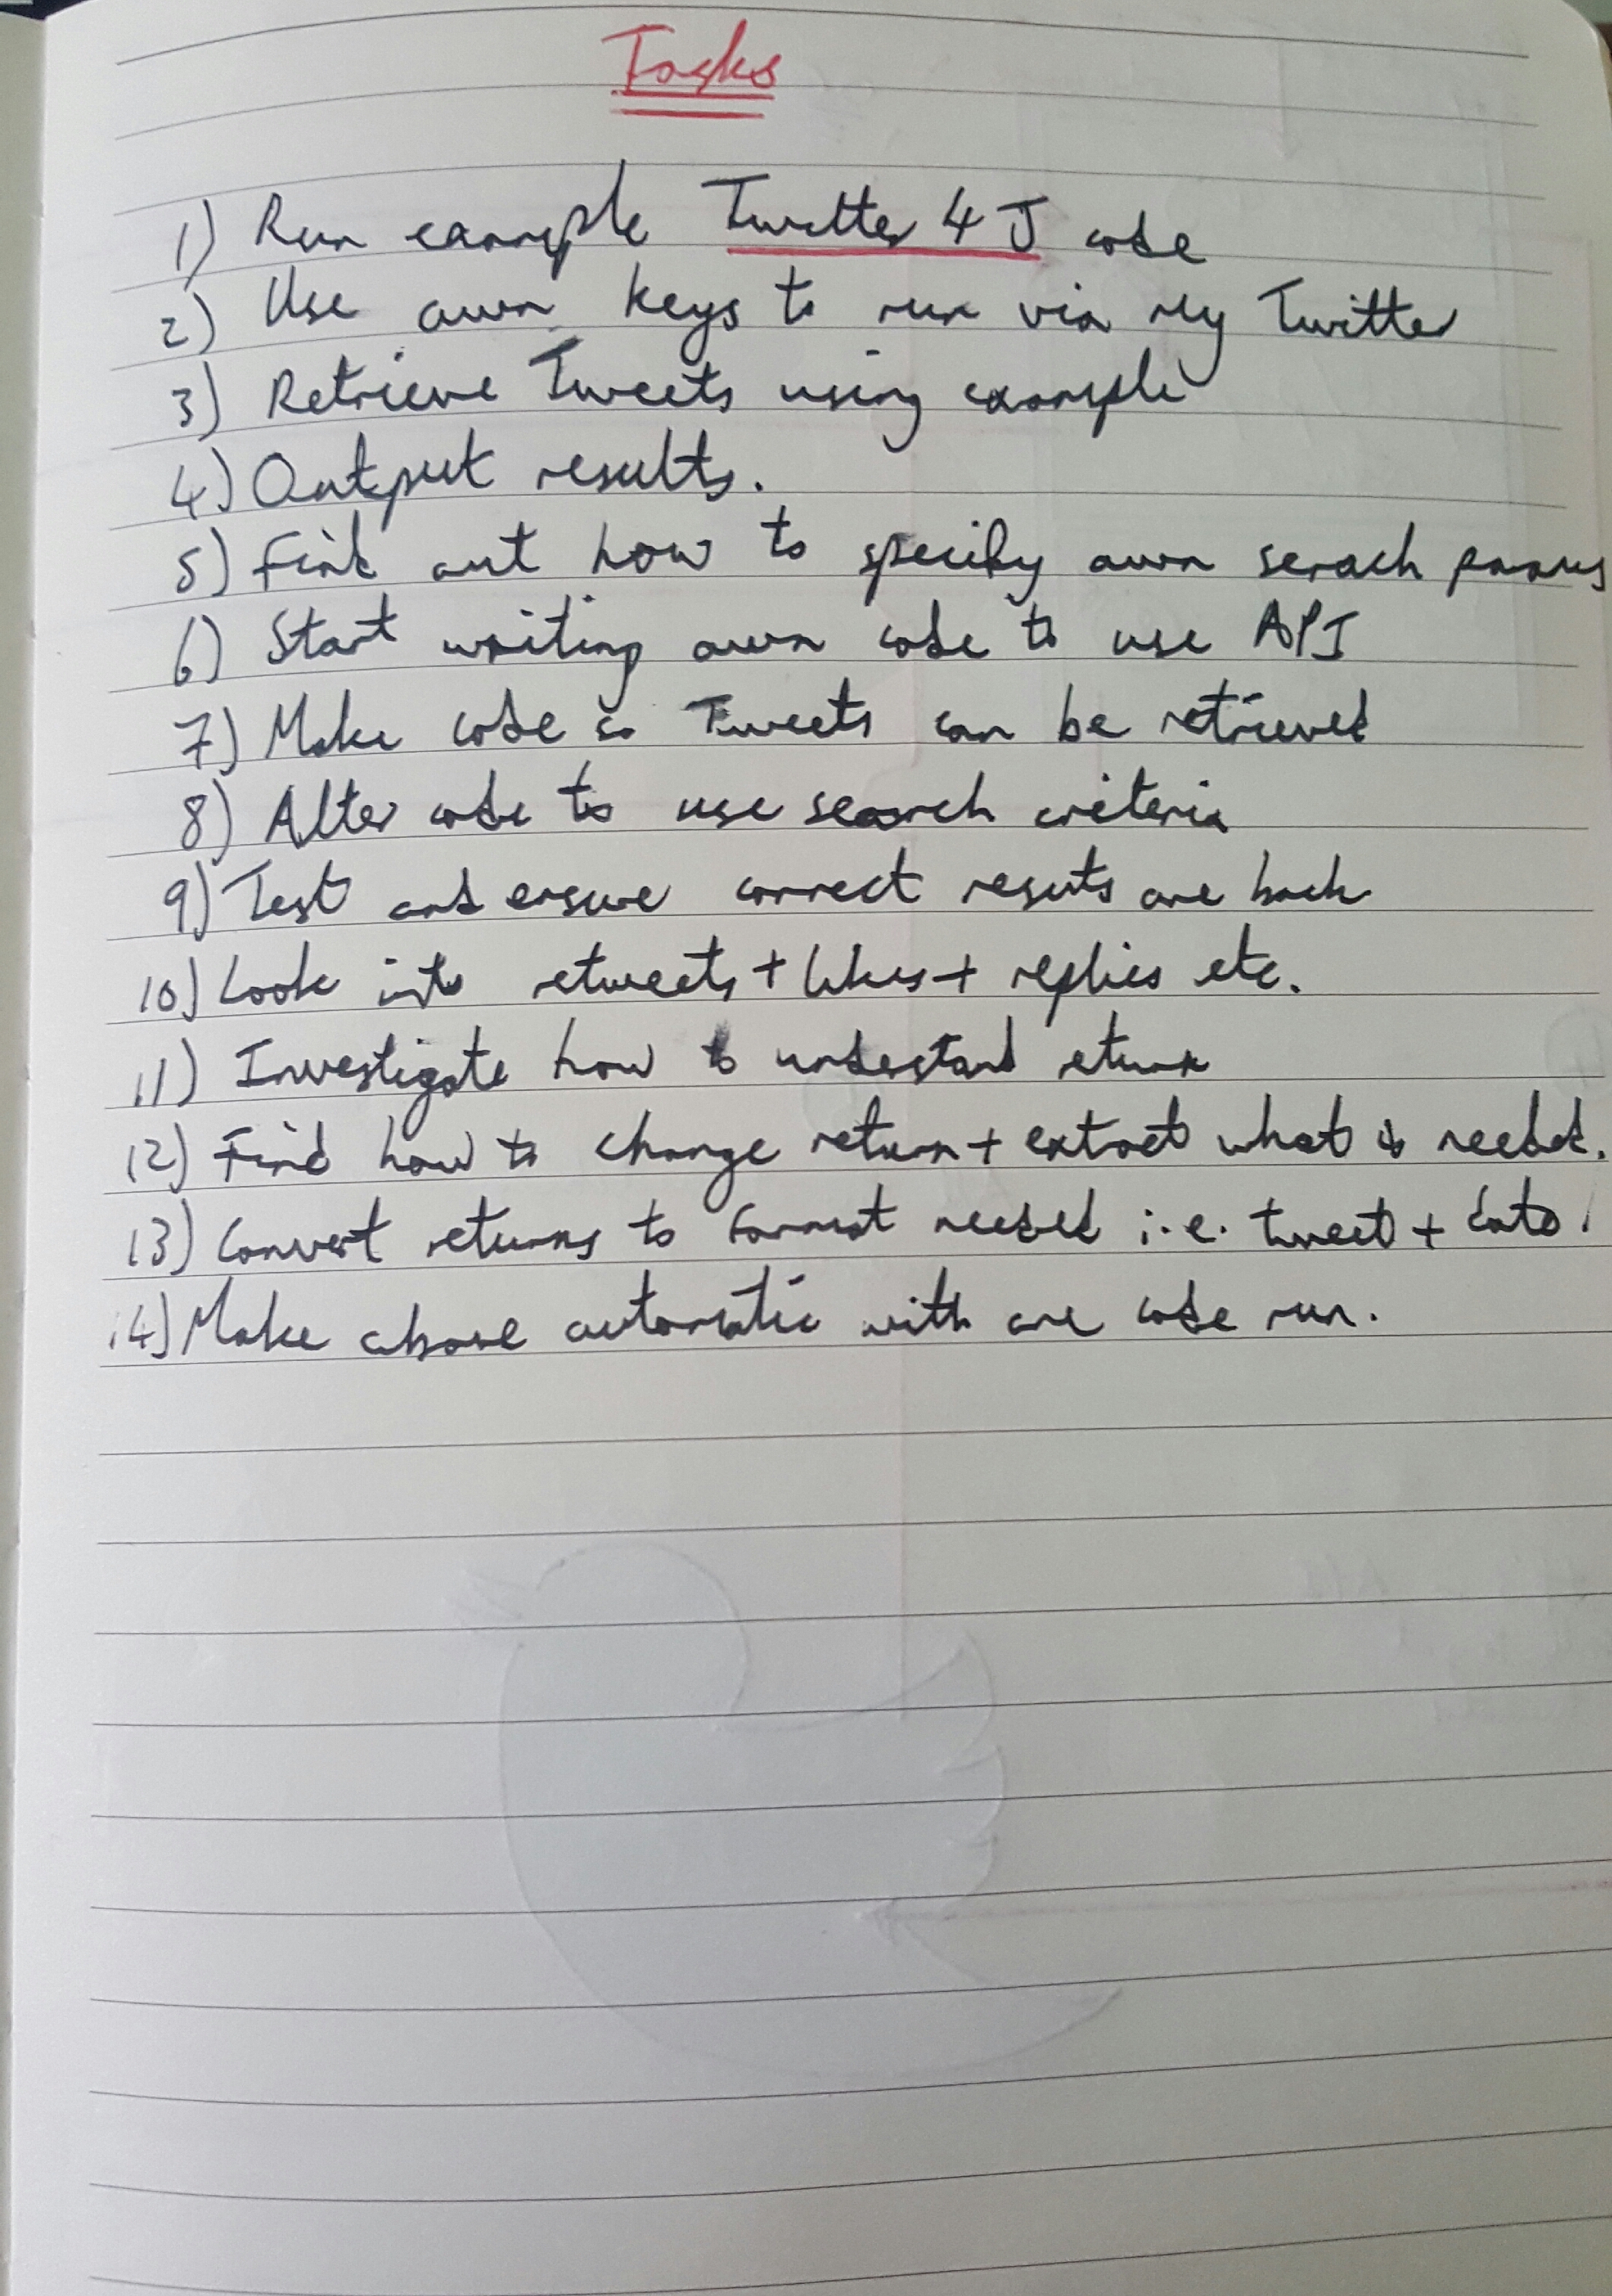 Tasks
1) Run example Twitter 4 J code
2) Use own keys to run via My Twitter
3) Retrieve Tweets using example
4) Output results.
5) Find out how to specify own serach params
6) Start writing own code to use API
7) Make code so Tweets can be retrieved
8) Alter code to use search criteria
9) Test and ensure correct resuts are back
10) Look into retweets + likes + replies etc.
11) Investigate how to understand return
12) Find how to change return + extract what is needed.
13) Convert returns to format needed i.e. tweet + date
14) Make above automatic with one code run.